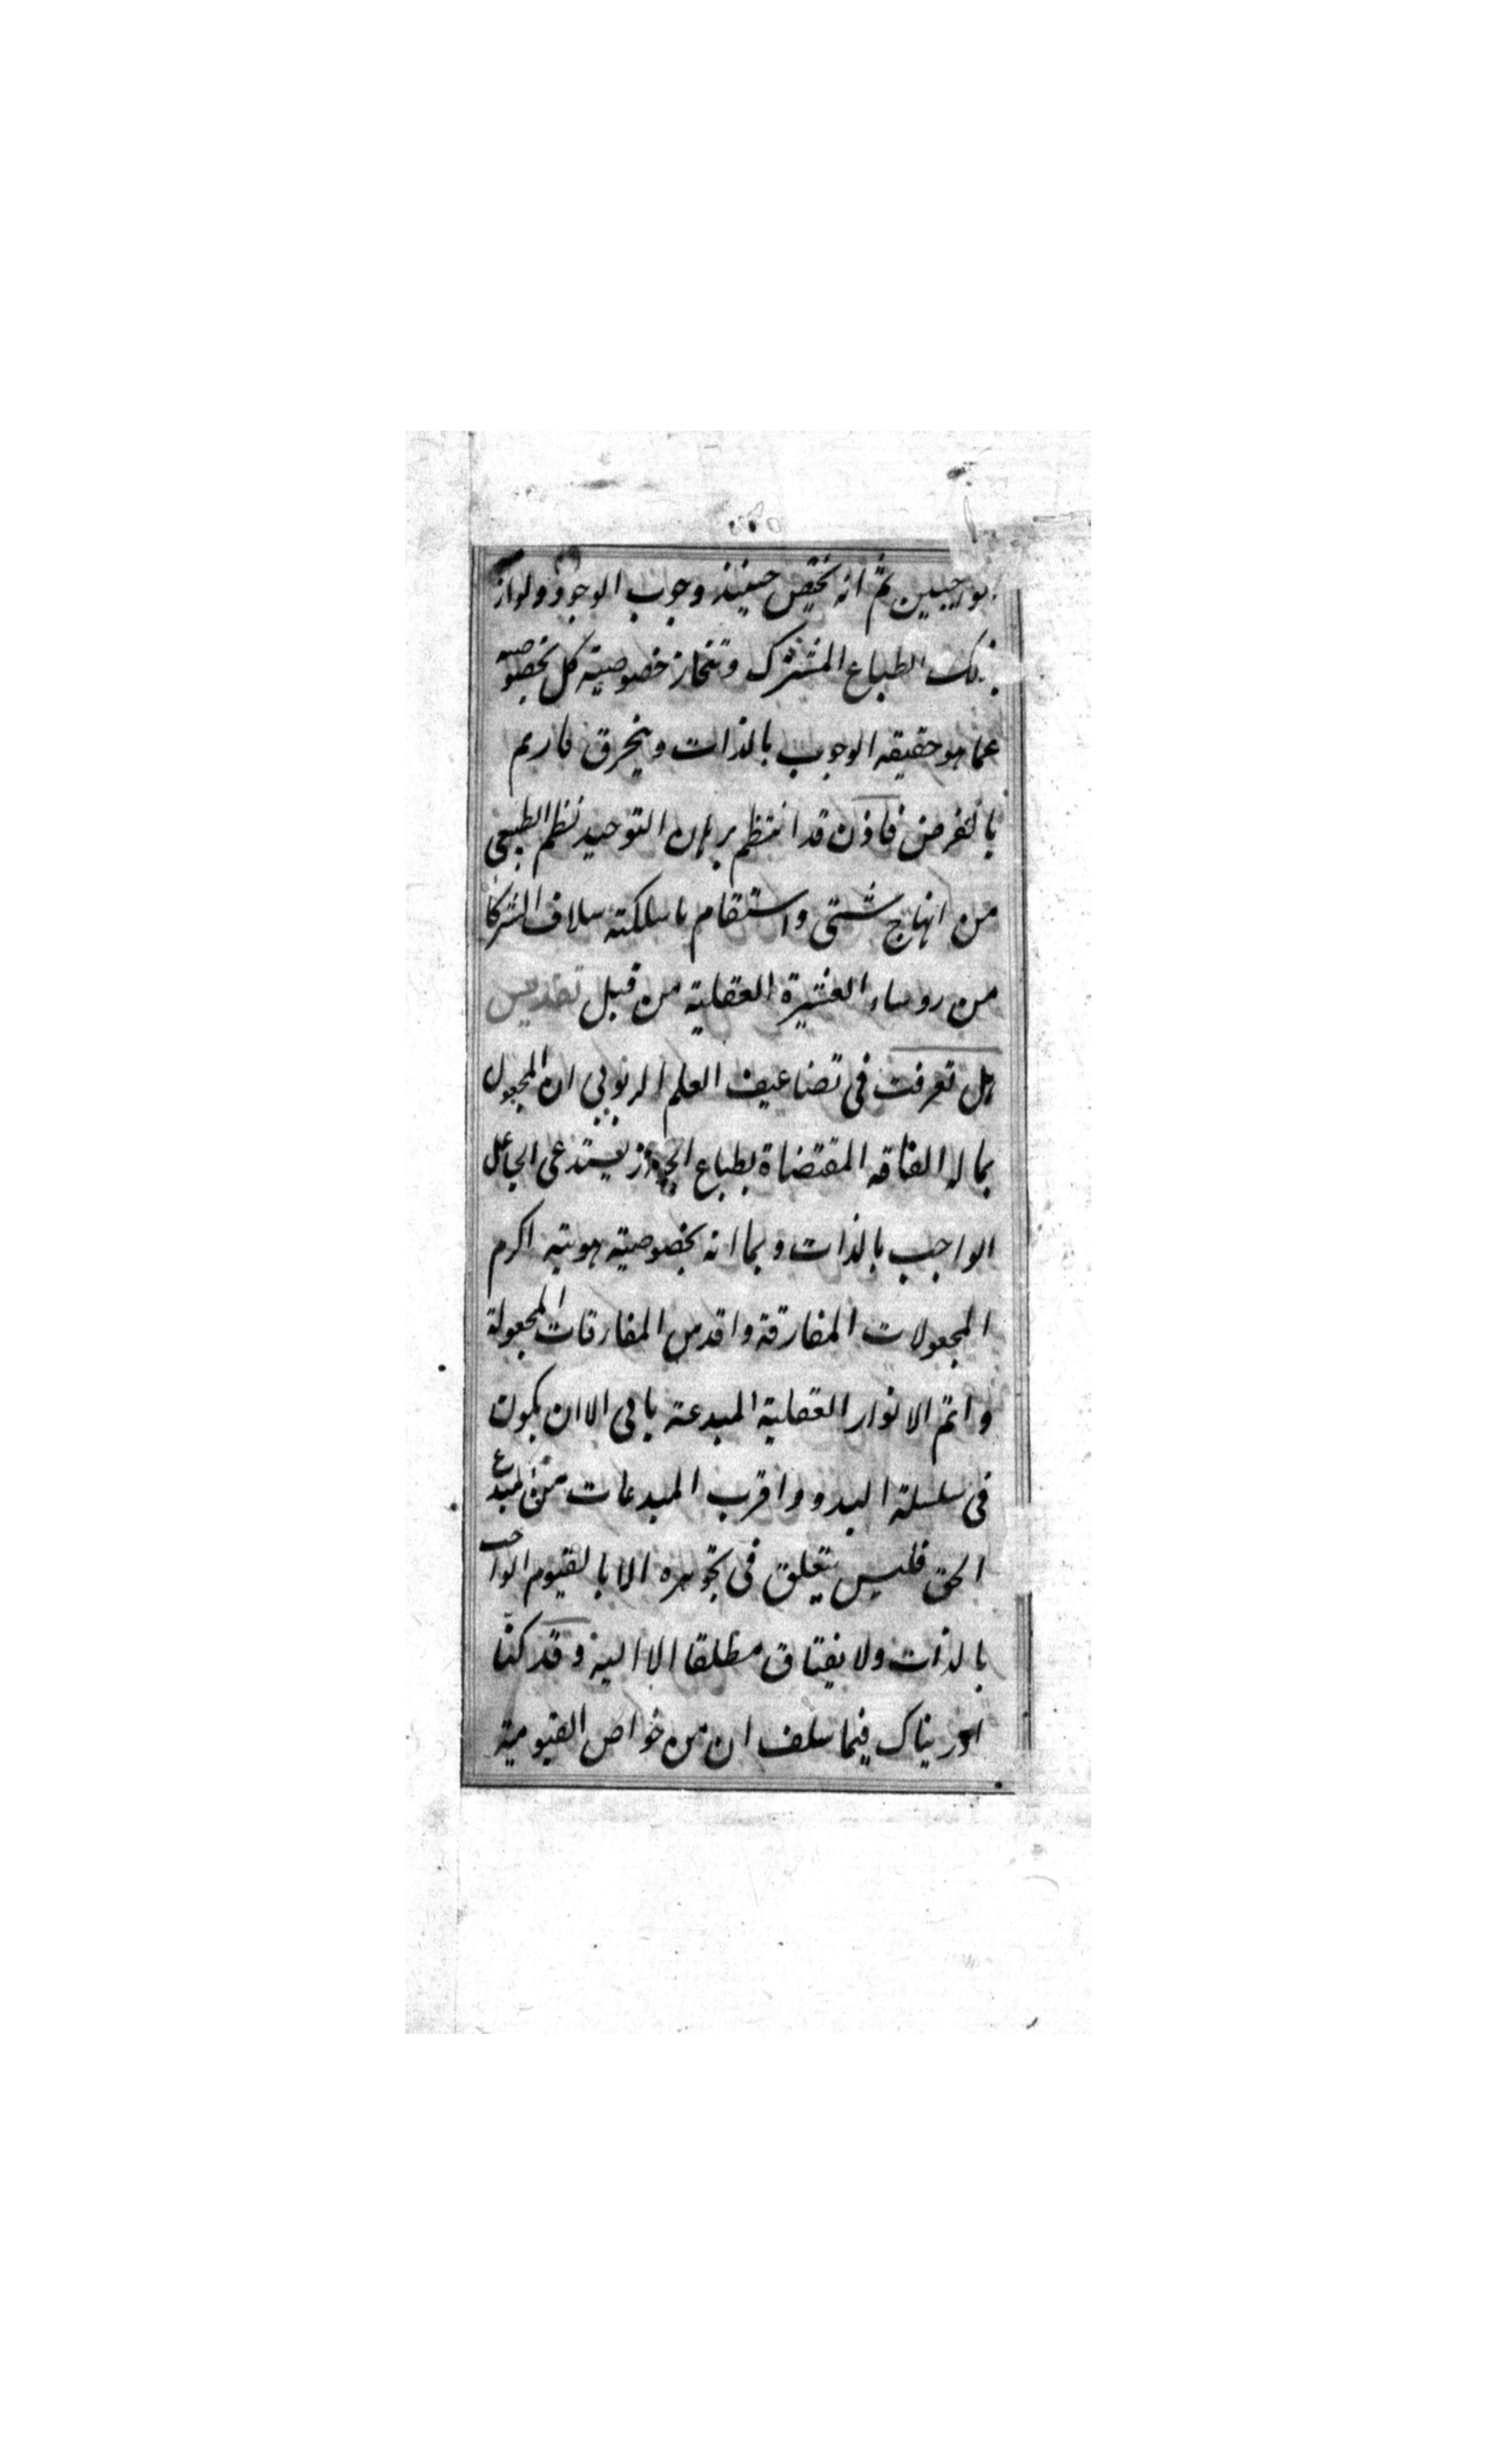 بواجبين ثم انه يختص حينئذ وجوب الوجود ولوازمه
بذلك الطباع المشترك وتنحاز خصوصية كل بخصوصه
عما هو حقيقه الوجوب بالذات وينخرق ما ريم
بالفرض فاذن قد انتظم برهان التوحيد نظم الطبيعى
من انهاج شتى واستقام ما سلكته سلاف الشركا
من روساء العشيرة العقلية من قبل تقديس
هل تعرفت فى تضاعيف العلم الربوبى ان المجعول
بما له الفاقه المقتضاة بطباع الجواز يستدعى الجاعل
الواجب بالذات وبما انه بخصوصية هويته اكرم
المجعولات المفارقة واقدس المفارقات المجعولة
واتم الانوار العقلية المبدعة يابى الا ان يكون
فى سلسلة البدو واقرب المبدعات من المبدع
الحق فليس يتعلق فى تجوهره الا بالقيوم الواجب
بالذات ولا يفتاق مطلقا الا اليه وقد كنا
ادريناك فيما سلف ان من خواص القيومية